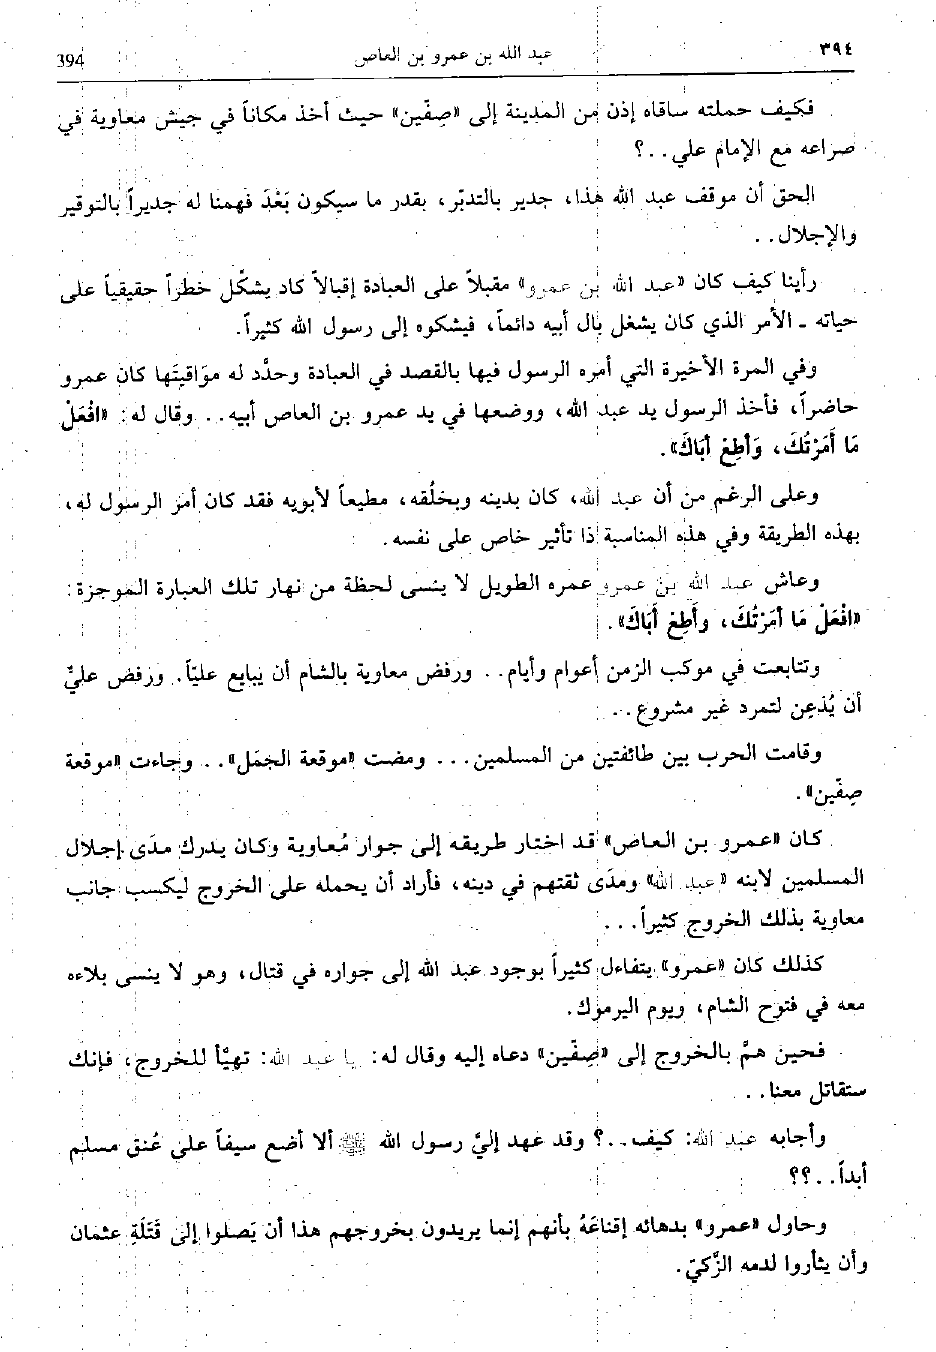 ٣٩٤ عبد الله بن عمرو بن العاص 394
فكيف حملته ساقاه إذن من المدينة إلى «صِفّين» حيث أخذ مكاناً في جيش معاوية في
صراعه مع الإمام علي..؟
الحق أن موقف عبد الله هذا، جدير بالتدبّر، بقدر ما سيكون بَعْدَ فهمنا له جديراً بالتوقير
والإجلال..
رأينا كيف كان «عبد الله بن عمرو» مقبلاً على العبادة إقبالاً كاد يشكّل خطراً حقيقياً على
حياته ـ الأمر الذي كان يشغل بال أبيه دائماً، فيشكوه إلى رسول الله كثيراً.
وفي المرة الأخيرة التي أمره الرسول فيها بالقصد في العبادة وحدَّد له مواقيتَها كان عمرو
حاضراً، فأخذ الرسول يد عبد الله، ووضعها في يد عمرو بن العاص أبيه.. وقال له: «افْعَلْ
مَا أَمَرْتُكَ، وَأطِعْ أبَاكَ».
وعلى الرغم من أن عبد الله، كان بدينه وبخلُقه، مطيعاً لأبويه فقد كان أمر الرسول له،
بهذه الطريقة وفي هذه المناسبة ذا تأثير خاص على نفسه.
وعاش عبد الله بن عمرو عمره الطويل لا ينسى لحظة من نهار تلك العبارة الموجزة:
«افْعَلْ مَا أمَرْتُكَ، وأَطِعْ أَبَاكَ».
وتتابعت في موكب الزمن أعوام وأيام.. ورفض معاوية بالشام أن يبايع عليّاً. ورفض عليٌّ
أن يُذعِن لتمرد غير مشروع..
وقامت الحرب بين طائفتين من المسلمين... ومضت «موقعة الجمَل».. وجاءت «موقعة
صِفّين».
كان «عمرو بن العاص» قد اختار طريقه إلى جوار مُعاوية وكان يدرك مدَى إجلال
المسلمين لابنه «عبد الله» ومدَى ثقتهم في دينه، فأراد أن يحمله على الخروج ليكسب جانب
معاوية بذلك الخروج كثيراً...
كذلك كان «عمرو» يتفاءل كثيراً بوجود عبد الله إلى جواره في قتال، وهو لا ينسى بلاءه
معه في فتوح الشام، ويوم اليرموك.
فحين همَّ بالخروج إلى «صِفّين» دعاه إليه وقال له: يا عبد الله: تهيّأ للخروج، فإنك
ستقاتل معنا..
وأجابه عبد الله: كيف..؟ وقد عهد إليَّ رسول الله ﷺ ألا أضع سيفاً على عُنق مسلم
أبداً..؟؟
وحاول «عمرو» بدهائه إقناعَهُ بأنهم إنما يريدون بخروجهم هذا أن يَصلوا إلى قَتَلَةِ عثمان
وأن يثأروا لدمه الزَّكيّ.